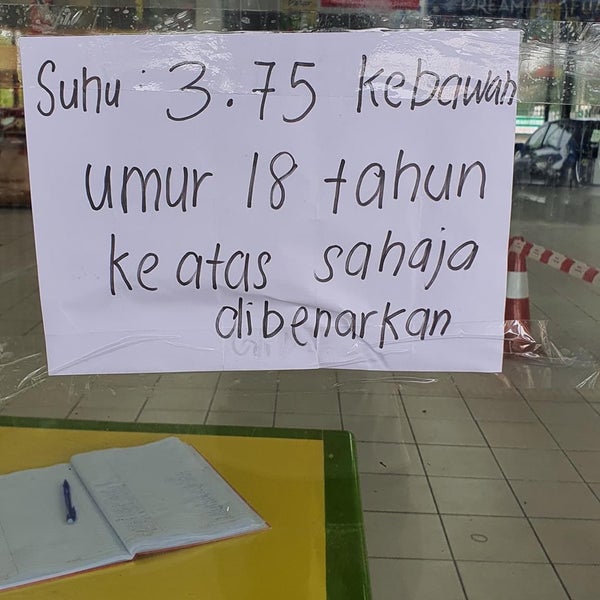 Suhu : 3.75 kebawah
umur 18 tahun
ke atas sahaja
dibenarkan